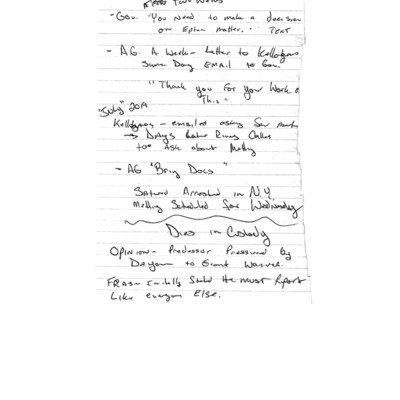 Two words
- Gov. "You need to make a decision
on Epton matter." TEXT
- AG. A week - Letter to Kellogg
Same Day Email to Gov
"Thank you for your Work
This"
"July" 2019
- emailed asking for
→ Days Later Rivas Called
to Ask about Meeting
- AG "Bring Docs"
Arrested in N.Y.
Meeting Scheduled for Wednesday
Dies in Custody
OPINION - Predessor Pressured by
to Grant Waiver.
FRAS - Initially Said He must Report
Like everyone Else.